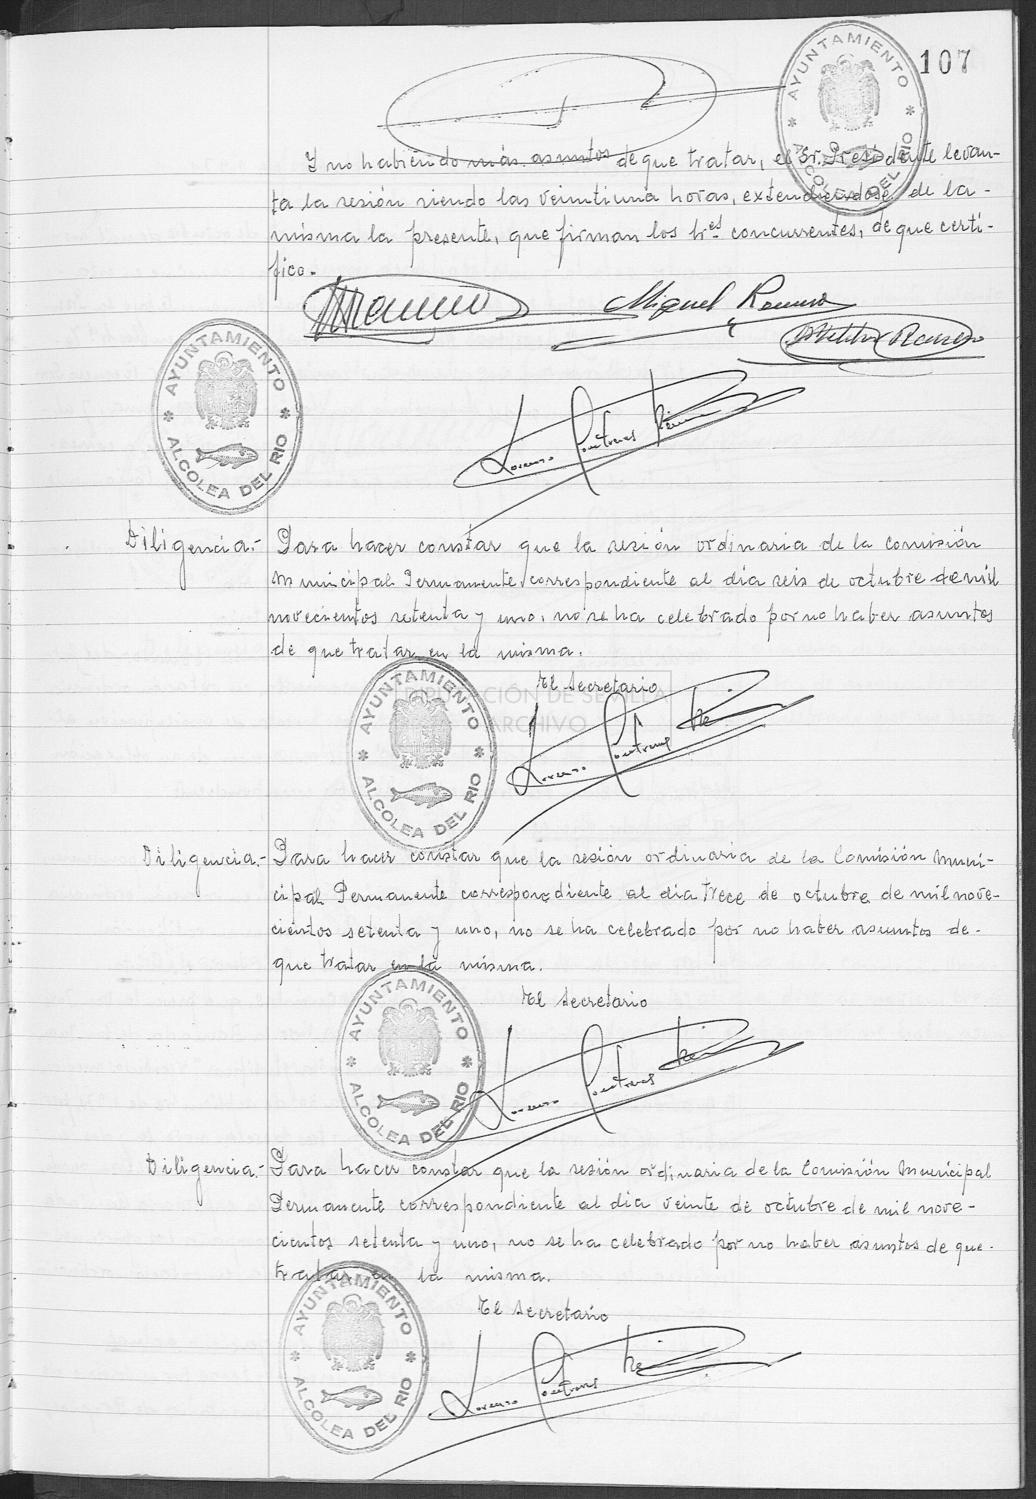 107
AYUNTAMIENTO
ALCOLEA DEL RIO
Y no habiendo más asuntos de que tratar, el Sr. Presidente levan-
ta la sesión siendo las veintiuna horas, extendiendose de la
misma la presente, que firman los sres concurrentes, de que certi-
fico.-
Miguel Romero
AYUNTAMIENTO
ALCOLEA DEL RIO
Lorenzo Contreras
Diligencia.- Para hacer constar que la sesión ordinaria de la Comisión
Municipal Permanente, correspondiente al día seis de octubre de mil
novecientos setenta y uno, no se ha celebrado por no haber asuntos
de que tratar en la misma.
El Secretario
DIPUTACIÓN DE SEVILLA
ARCHIVO
AYUNTAMIENTO
ALCOLEA DEL RIO
Lorenzo Contreras
Diligencia.- Para hacer constar que la sesión ordinaria de la Comisión Muni-
cipal Permanente correspondiente al día trece de octubre de mil nove-
cientos setenta y uno, no se ha celebrado por no haber asuntos de-
que tratar en la misma.
El Secretario
AYUNTAMIENTO
ALCOLEA DEL RIO
Lorenzo Contreras
Diligencia.- Para hacer constar que la sesión ordinaria de la Comisión Municipal
Permanente correspondiente al día veinte de octubre de mil nove-
cientos setenta y uno, no se ha celebrado por no haber asuntos de que-
tratar en la misma.
El Secretario
AYUNTAMIENTO
ALCOLEA DEL RIO
Lorenzo Contreras